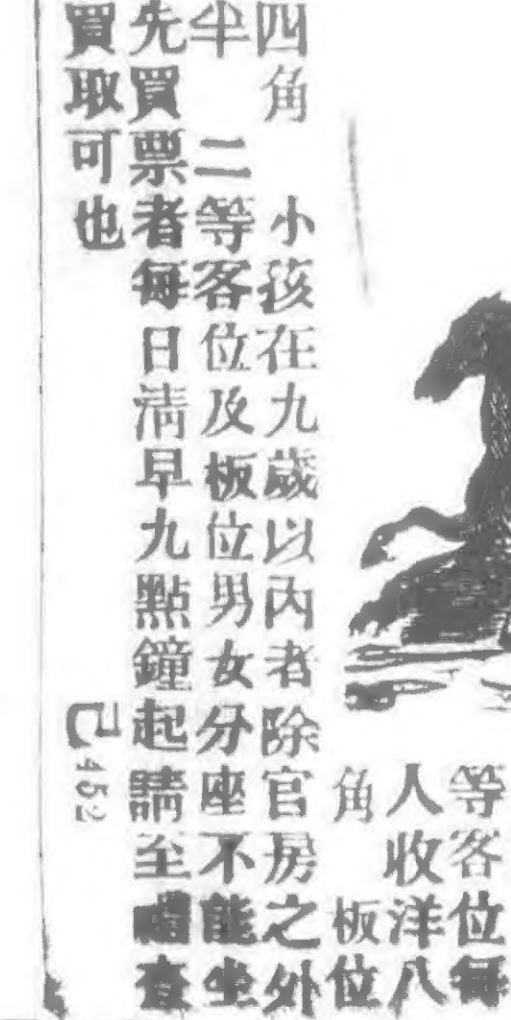 等客位每
人收洋八
角　板位
四角　小孩在九歲以內者除官房之外
半　二等客位及板位男女分座不能坐
先買票者每日淸早九點鐘起請至嗜查
買取可也　己452